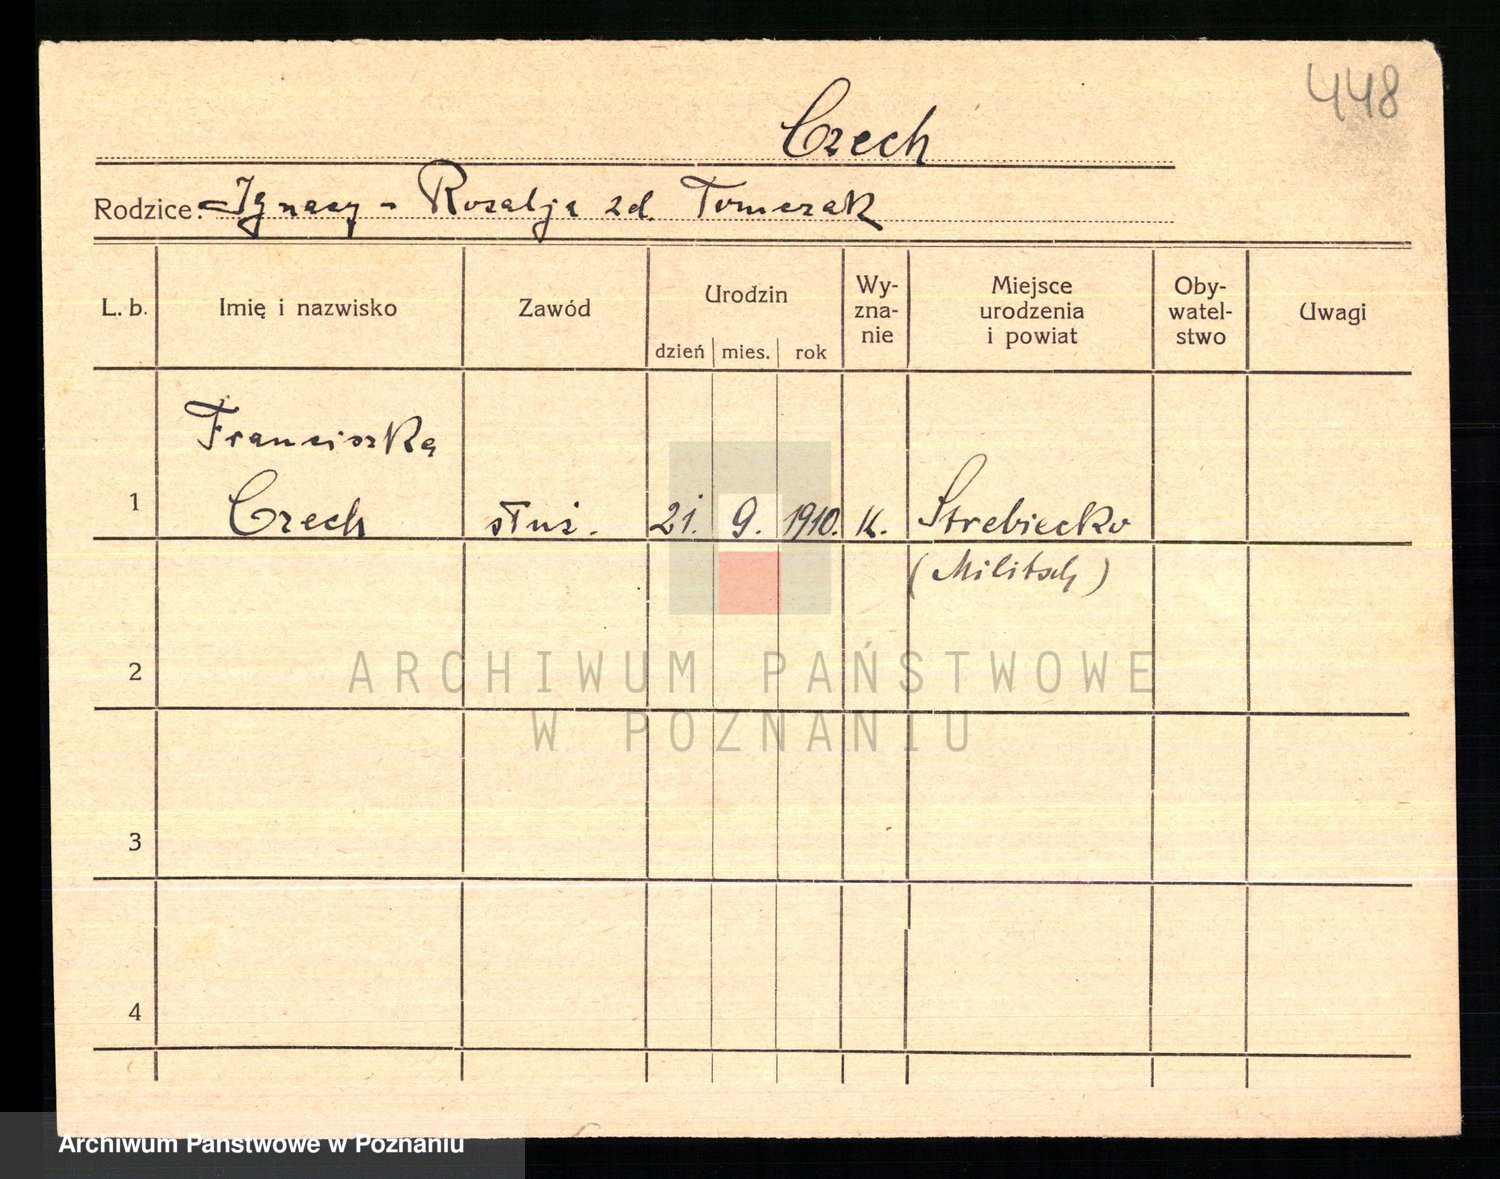 448
Czech
Rodzice: Ignacy - Rozalja zd. Tomczak
L. b.
Imię i nazwisko
Zawód
Urodzin
dzień mies. rok
Wy-
zna-
nie
Miejsce
urodzenia
i powiat
Oby-
watel-
stwo
Uwagi
1
Franciszka
Czech
służ.
21. 9. 1910.
K.
Strebiecko
(Militsch)
2
3
4
ARCHIWUM PAŃSTWOWE
W POZNANIU
Archiwum Państwowe w Poznaniu